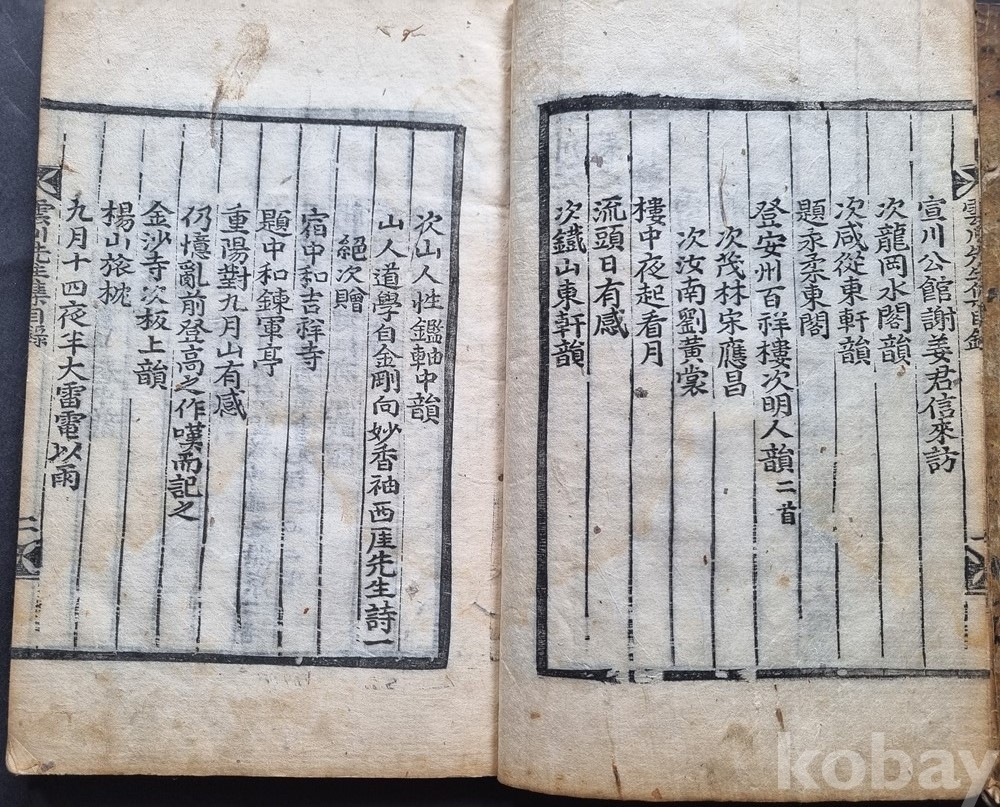 宣川公館謝姜君信來訪
次龍岡水閣韻
次咸從東軒韻
題永柔東閣
登安州百祥樓次明人韻二首
次茂林宋應昌
次汝南劉黃裳
樓中夜起看月
流頭日有感
次鐵山東軒韻
次山人性鑑軸中韻
山人道學自金剛向妙香袖西厓先生詩一
絕次贈
宿中和吉祥寺
題中和鍊軍亭
重陽對九月山有感
仍憶亂前登高之作嘆而記之
金沙寺次板上韻
楊山旅枕
九月十四夜半大雷電以雨
雲川先生集目錄
二
kobay